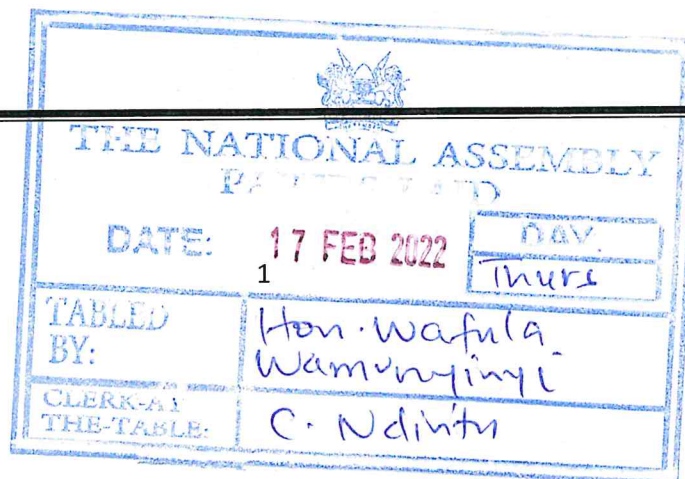 THE NATIONAL ASSEMBLY
PAPERS LAID
DATE: 17 FEB 2022 DAY.
1
Thurs
TABLED BY: Hon. Wafula Wamunyinyi
CLERK-AT THE-TABLE: C. Ndiritu